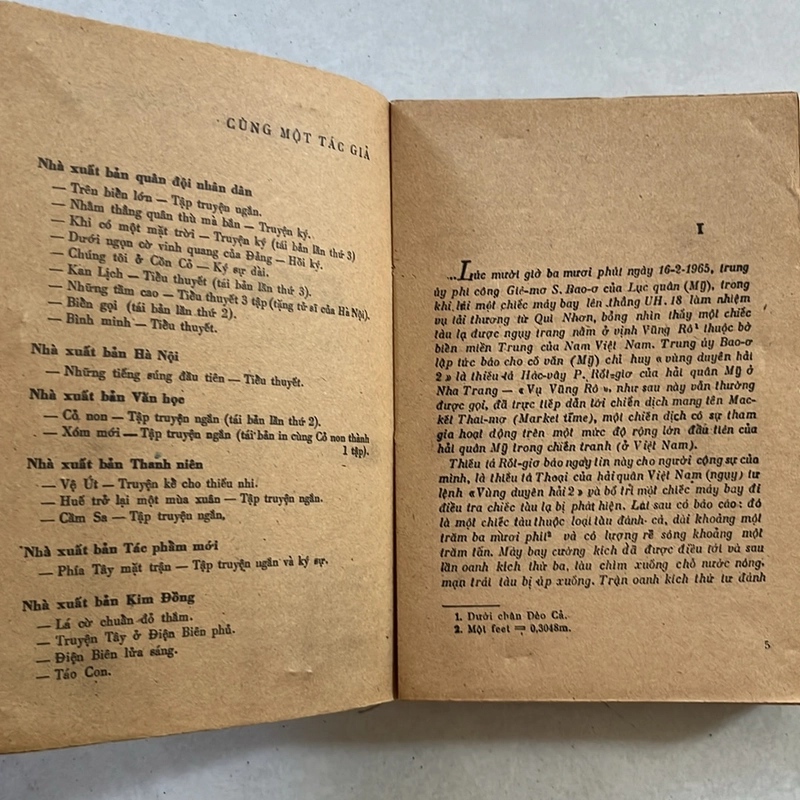 CÙNG MỘT TÁC GIẢ
Nhà xuất bản quân đội nhân dân
— Trên biển lớn — Tập truyện ngắn.
— Nhằm thẳng quân thù mà bắn — Truyện ký.
— Khi có một mặt trời — Truyện ký (tái bản lần thứ 3)
— Dưới ngọn cờ vinh quang của Đảng — Hồi ký.
— Chúng tôi ở Cồn Cỏ — Ký sự dài.
— Kan Lịch — Tiểu thuyết (tái bản lần thứ 3).
— Những tầm cao — Tiểu thuyết 3 tập (tặng tử sĩ của Hà Nội).
— Biển gọi (tái bản lần thứ 2).
— Bình minh — Tiểu thuyết.
Nhà xuất bản Hà Nội
— Những tiếng súng đầu tiên — Tiểu thuyết.
Nhà xuất bản Văn học
— Cỏ non — Tập truyện ngắn (tái bản lần thứ 2).
— Xóm mới — Tập truyện ngắn (tái bản in cùng Cỏ non thành
1 tập).
Nhà xuất bản Thanh niên
— Vệ Út — Truyện kể cho thiếu nhi.
— Huế trở lại một mùa xuân — Tập truyện ngắn.
— Cầm Sa — Tập truyện ngắn.
Nhà xuất bản Tác phẩm mới
— Phía Tây mặt trận — Tập truyện ngắn và ký sự.
Nhà xuất bản Kim Đồng
— Lá cờ chuẩn đỏ thắm.
— Truyện Tây ở Điện Biên phủ.
— Điện Biên lửa sáng.
— Táo Con.
I
...Lúc mười giờ ba mươi phút ngày 16-2-1965, trung
úy phi công Giê-mơ S. Bao-ơ của Lục quân (Mỹ), trong
khi lái một chiếc máy bay lên thẳng UH. 18 làm nhiệm
vụ tải thương từ Qui Nhơn, bỗng nhìn thấy một chiếc
tàu lạ được ngụy trang nằm ở vịnh Vũng Rô¹ thuộc bờ
biển miền Trung của Nam Việt Nam. Trung úy Bao-ơ
lập tức báo cho cố văn (Mỹ) chỉ huy «vùng duyên hải
2» là thiếu tá Hác-vây P. Rốt-giơ của hải quân Mỹ ở
Nha Trang — «Vụ Vũng Rô», như sau này vẫn thường
được gọi, đã trực tiếp dẫn tới chiến dịch mang tên Mac-
két Thai-mơ (Market time), một chiến dịch có sự tham
gia hoạt động trên một mức độ rộng lớn đầu tiên của
hải quân Mỹ trong chiến tranh (ở Việt Nam).
Thiếu tá Rốt-giơ báo ngay tin này cho người cộng sự của
mình, là thiếu tá Thoại của hải quân Việt Nam (ngụy) tư
lệnh «Vùng duyên hải 2» và bố trí một chiếc máy bay đi
điều tra chiếc tàu lạ bị phát hiện. Lát sau có báo cáo: đó
là một chiếc tàu thuộc loại tàu đánh cá, dài khoảng một
trăm ba mươi phít² và có lượng rẽ sóng khoảng một
trăm tấn. Máy bay cường kích đã được điều tới và sau
lần oanh kích thứ ba, tàu chìm xuống chỗ nước nông,
mạn trái tàu bị úp xuống. Trận oanh kích thứ tư đánh
1. Dưới chân Đèo Cả.
2. Một feet = 0,3048m.
5